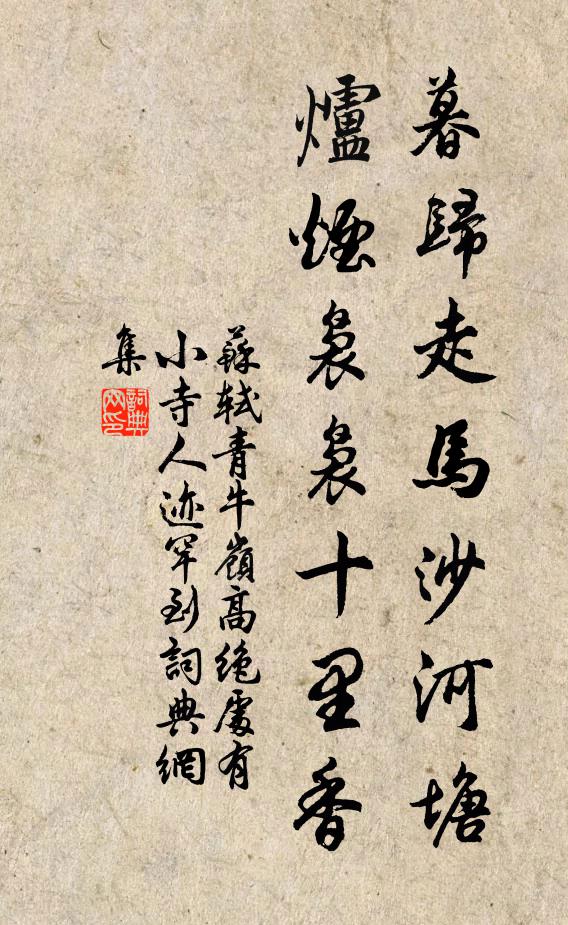 暮歸走馬沙河塘
爐煙裊裊十里香
蘇軾青牛嶺高絶處有
小寺人迹罕到詞典網
集
詞典
网印